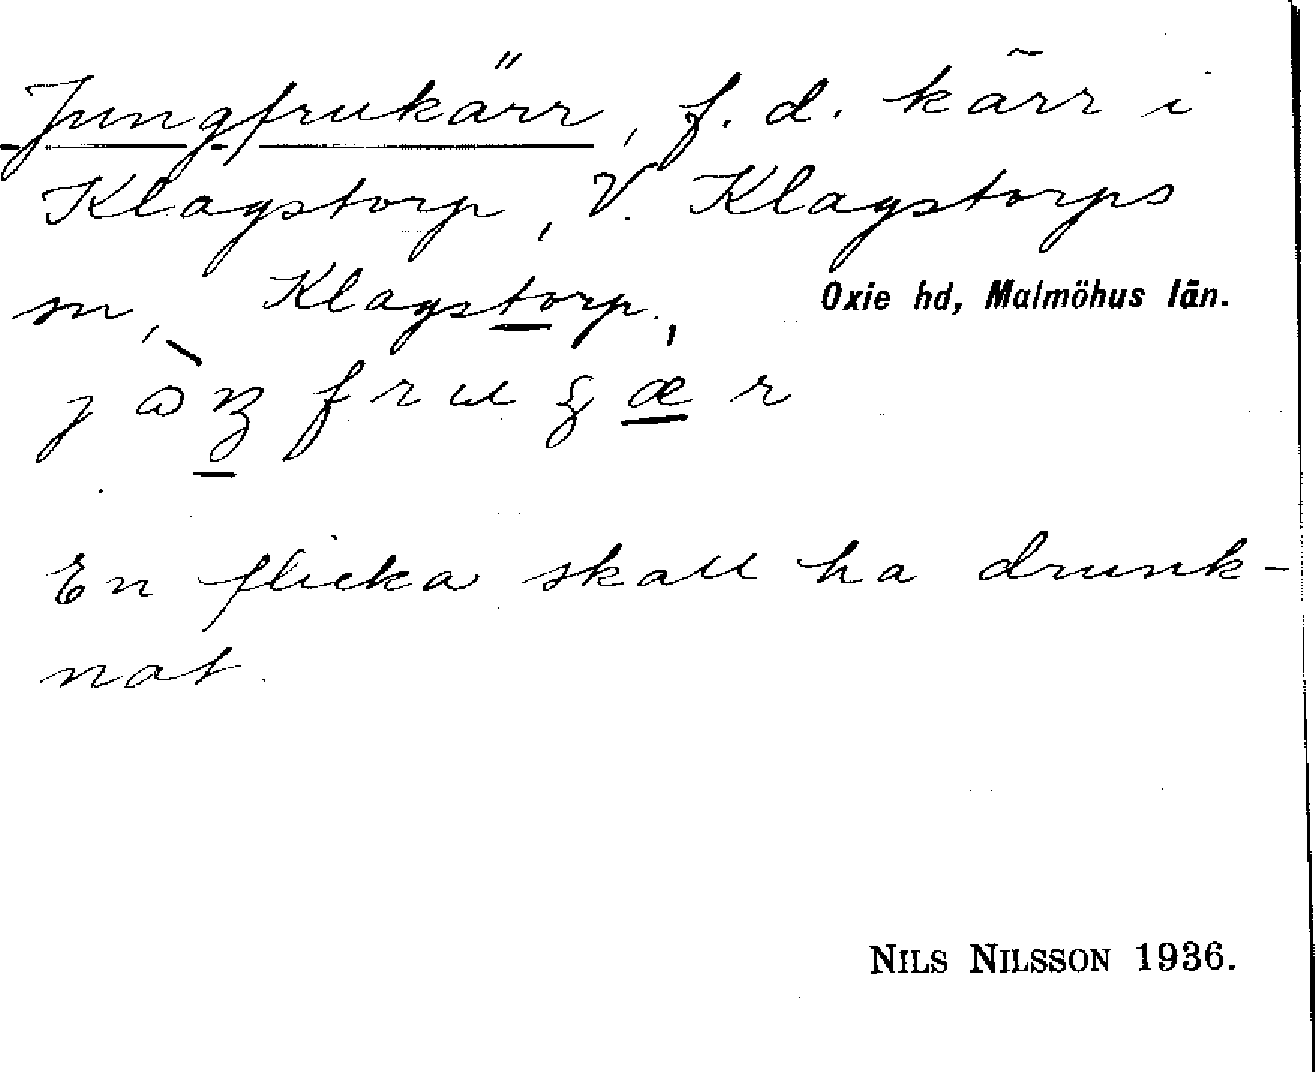 Jungfrukärr, f. d. kärr i
Klagstorp, V. Klagstorps
sn, Klagstorp, Oxie hd, Malmöhus län.
En flicka skall ha drunk-
nat.
NILS NILSSON 1936.